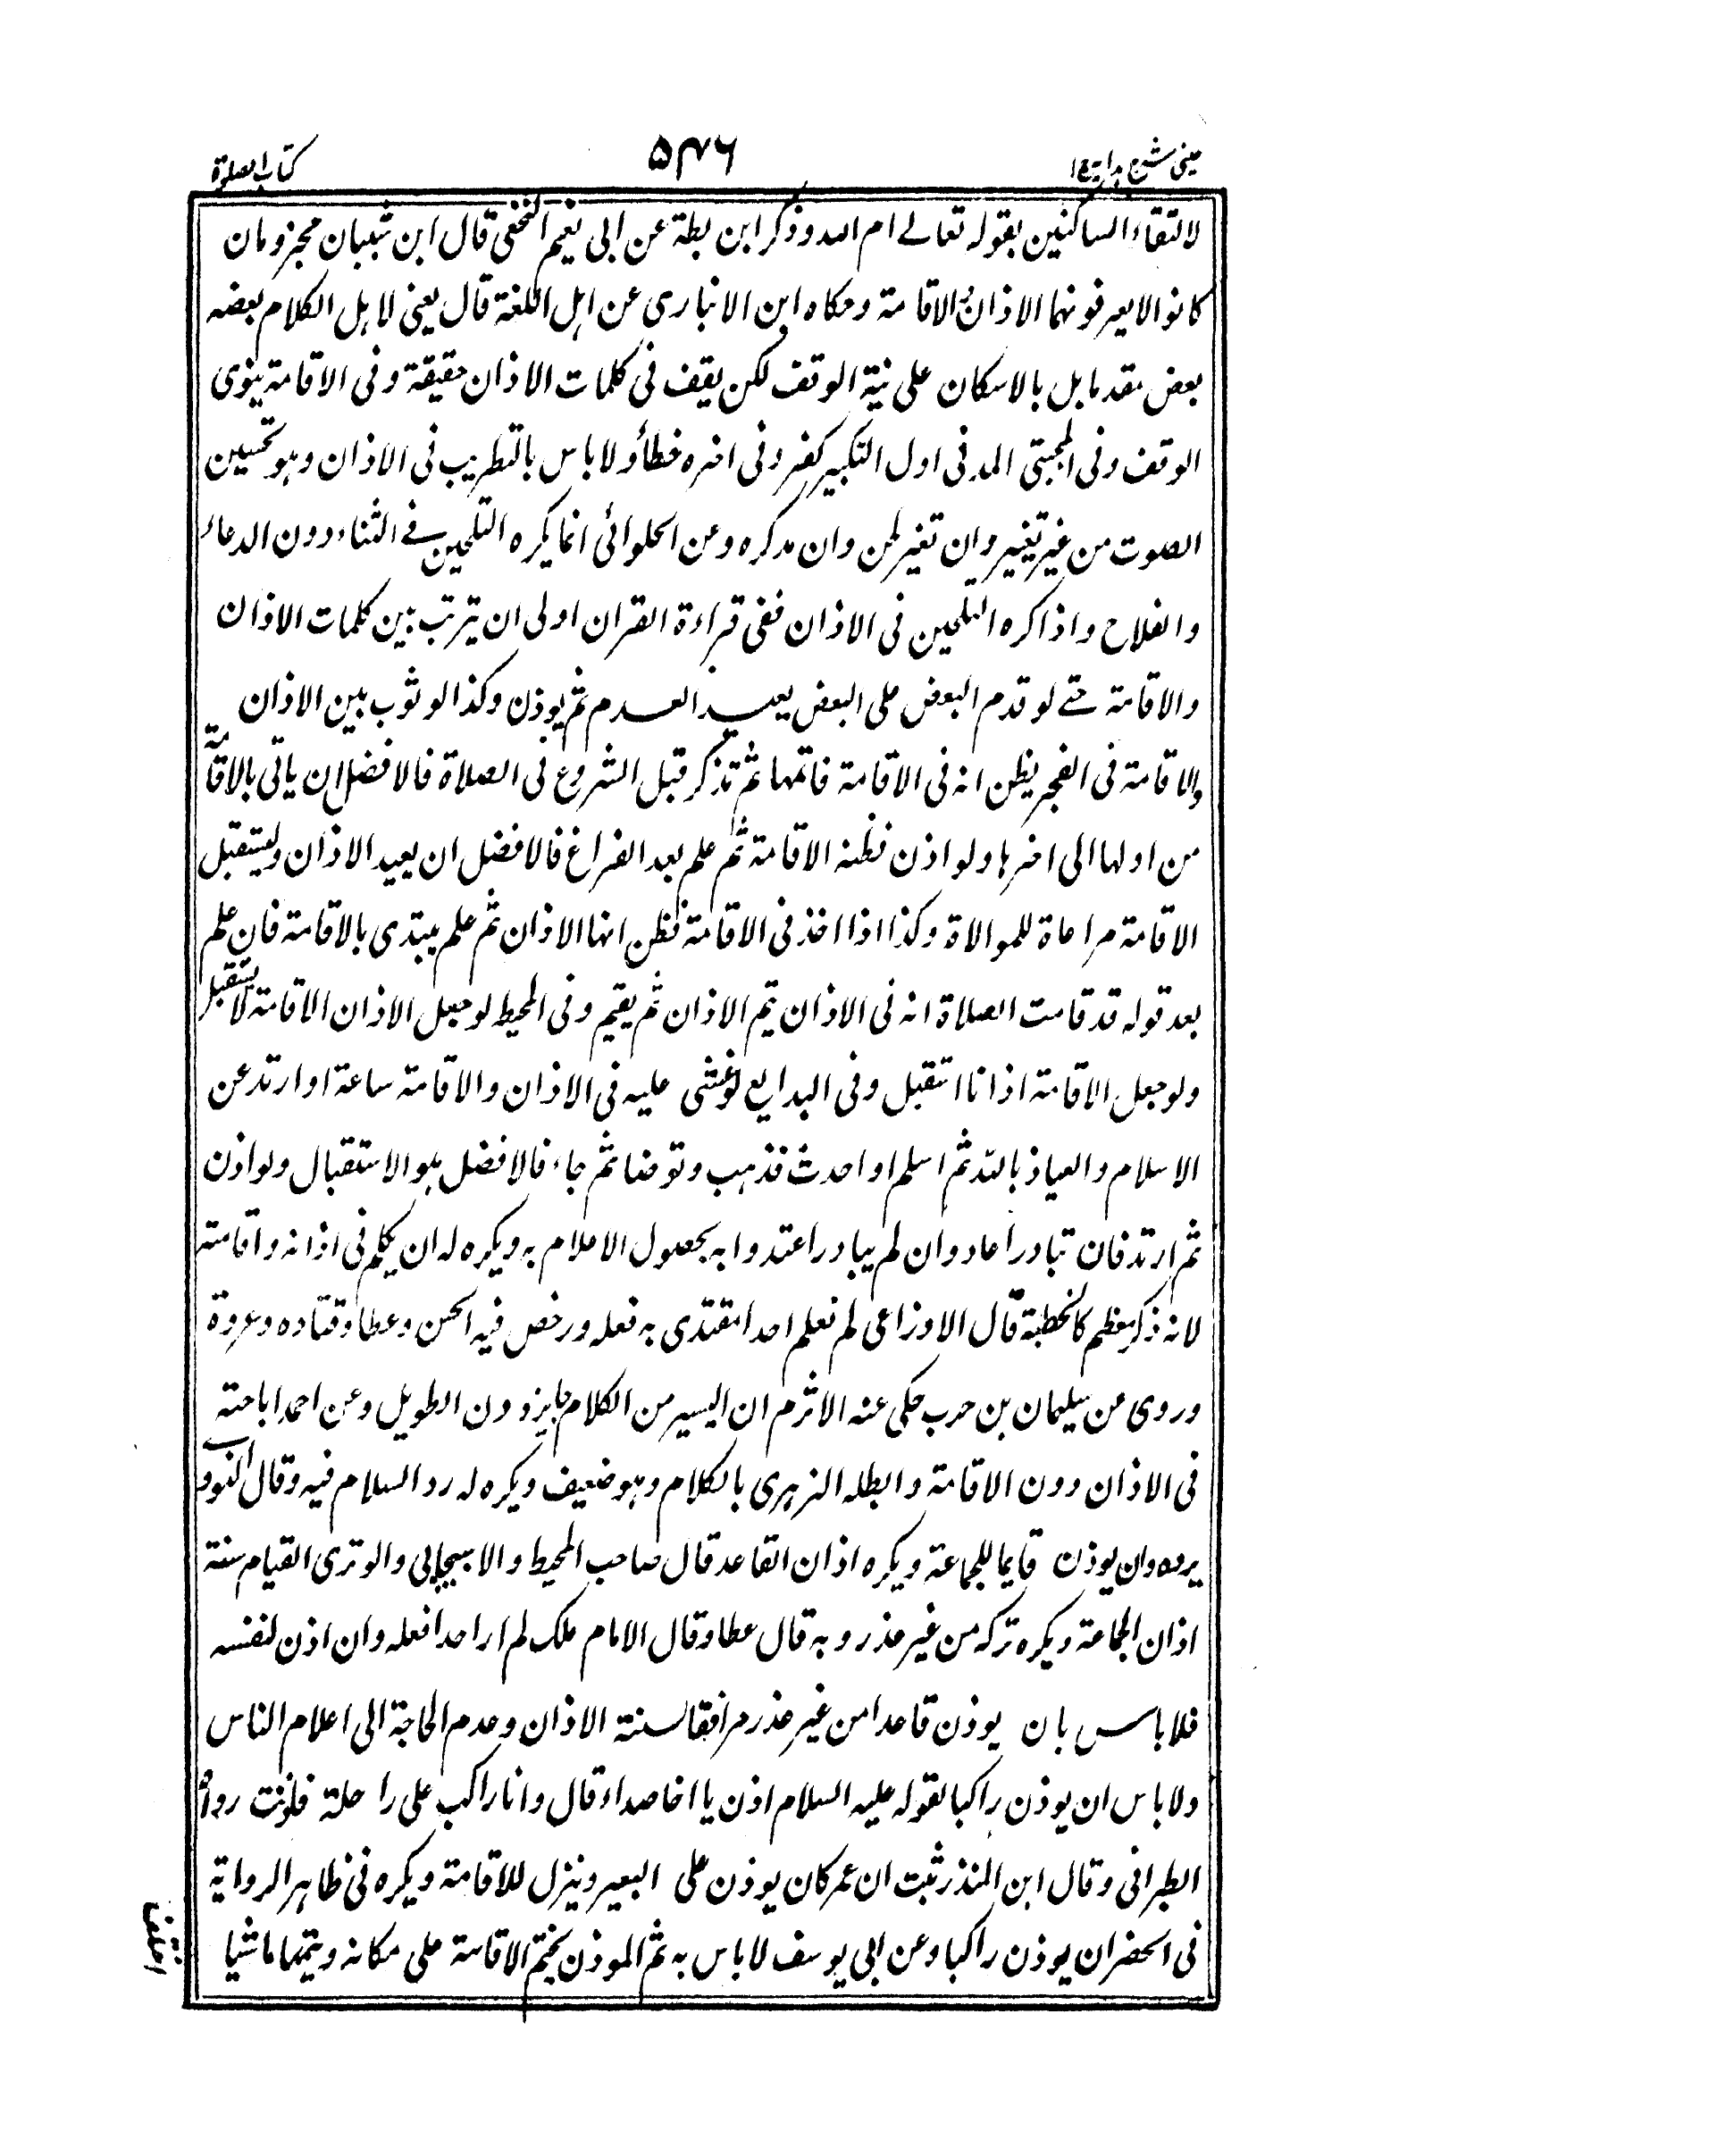 عینی شرح ہدایہ ج ۱
۵۴۶
کتاب الصلوة
لالتقاء الساکنین بقوله تعالے ام الله وذکر ابن بطة عن ابی نعیم النخعی قال ابن شیبان مجزومان
کانوا لا یعرفونهما الاذان والاقامة وحکاه ابن الانباری عن اہل اللغة قال یعنی لا یهل الکلام بعضه
بعض مقدما بل بالاسکان علی نیة الوقف لکن یقف فی کلمات الاذان حقیقة وفی الاقامة ینوی
الوقف وفی المجتبی المد فی اول التکبیر کفر وفی اخره خطأ ولا باس بالتطریب فی الاذان وہو تحسین
الصوت من غیر تغییر وان تغیر لحن وان مد کره وعن الحلوائی انما یکره التلحین فے الثناء دون الدعاء
والفلاح واذا کره التلحین فی الاذان ففی قراءة القران اولی ان یترتب بین کلمات الاذان
والاقامة حتے لو قدم البعض علی البعض یعید العدم ثم یوذن وکذا لو ثوب بین الاذان
والاقامة فی الفجر یظن انه فی الاقامة فاتمها ثم تذکر قبل الشروع فی الصلاة فالافضل ان یاتی بالاقامة
من اولها الی اخرہا ولو اذن فظنه الاقامة ثم علم بعد الفراغ فالافضل ان یعید الاذان ویستقبل
الاقامة مراعاة للموالاة وکذا اذا اخذ فی الاقامة فظن انها الاذان ثم علم یبتدی بالاقامة فان علم
بعد قوله قد قامت الصلاة انه فی الاذان یتم الاذان ثم یقیم وفی المحیط لو جعل الاذان الاقامة لا یستقبل
ولو جعل الاقامة اذانا استقبل وفی البدایع لو غشی علیه فی الاذان والاقامة ساعة او ارتد عن
الاسلام والعیاذ بالله ثم اسلم او احدث فذہب وتوضا ثم جاء فالافضل ہو الاستقبال ولو اذن
ثم ارتد فان تبادر اعاد وان لم یبادر اعتدوا به بحصول الاعلام به ویکره له ان یکلم فی اذانه واقامته
لانه ذکر معظم کالخطبة قال الاوزاعی لم نعلم احدا مقتدی به فعله ورخص فیه الحسن وعطا وقتاده وعروة
وروی عن سلیمان بن حرب حکی عنه الاثرم ان الیسیر من الکلام جایز دون الطویل وعن احمد اباحته
فی الاذان دون الاقامة وابطله الزہری بالکلام وہو ضعیف ویکره له رد السلام فیه وقال النووی
یرده وان یوذن قایما للجماعة ویکره اذان القاعد قال صاحب المحیط والاسبیجابی والوتری القیام سنة
اذان الجماعة ویکره ترکه من غیر عذر وبه قال عطا وقال الامام ملک لم ار احدا فعله وان اذن لنفسه
فلا باس بان یوذن قاعدا من غیر عذر مراقفا لسنة الاذان وعدم الحاجة الی اعلام الناس
ولا باس ان یوذن راکبا لقوله علیه السلام اذن یا اخا صداء قال وانا راکب علی راحلة فاذنت رواه
الطبرانی وقال ابن المنذر ثبت ان عمر کان یوذن علی البعیر وینزل للاقامة ویکره فی ظاہر الروایة
فی الحضر ان یوذن راکبا وعن ابی یوسف لا باس به ثم الموذن یختم الاقامة علی مکانه ویتمها ماشیا